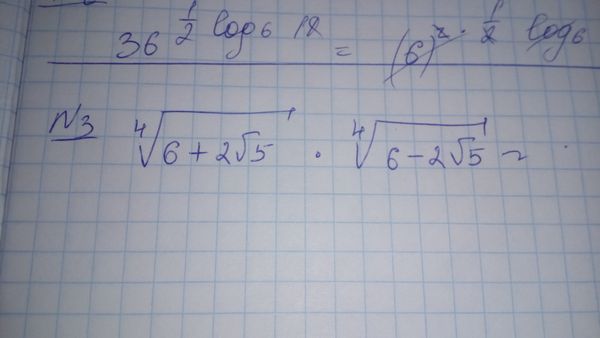 36^{\frac{1}{2} log_6 18} = (6)^{2 \cdot \frac{1}{2} log_6
N3 \sqrt[4]{6 + 2\sqrt{5}} \cdot \sqrt[4]{6 - 2\sqrt{5}} =